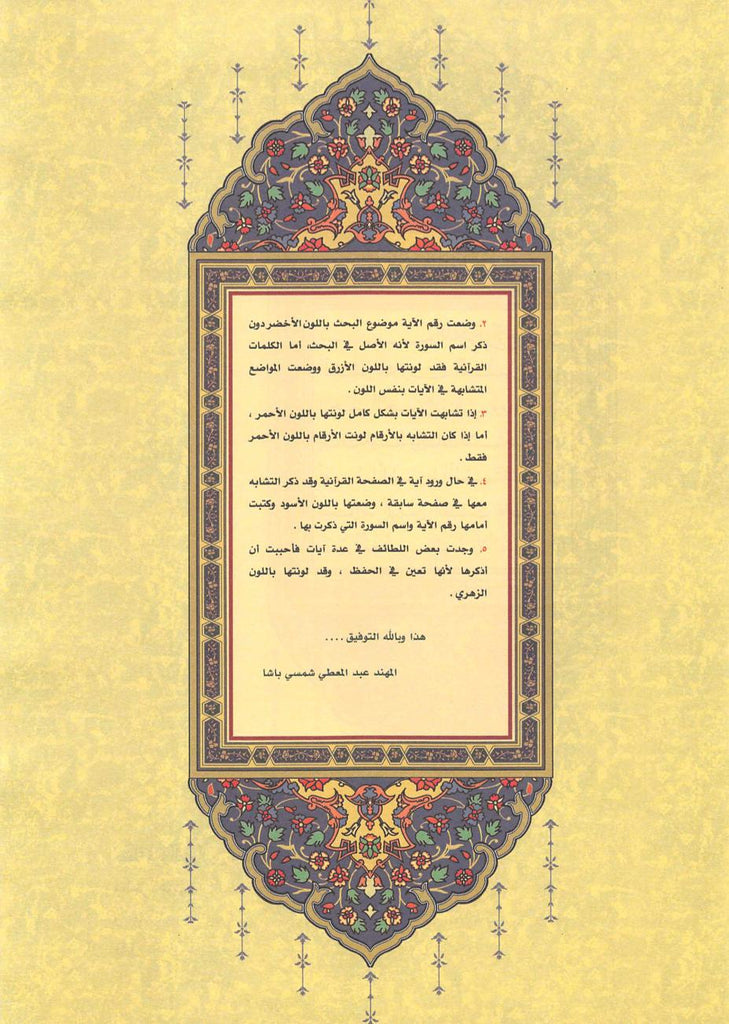 ٢. وضعت رقم الآية موضوع البحث باللون الأخضر دون
ذكر اسم السورة لأنه الأصل في البحث، أما الكلمات
القرآنية فقد لونتها باللون الأزرق ووضعت المواضع
المتشابهة في الآيات بنفس اللون .
٣. إذا تشابهت الآيات بشكل كامل لونتها باللون الأحمر ،
أما إذا كان التشابه بالأرقام لونت الأرقام باللون الأحمر
فقط .
٤. في حال ورود آية في الصفحة القرآنية وقد ذكر التشابه
معها في صفحة سابقة ، وضعتها باللون الأسود وكتبت
أمامها رقم الآية واسم السورة التي ذكرت بها .
٥. وجدت بعض اللطائف في عدة آيات فأحببت أن
أذكرها لأنها تعين في الحفظ ، وقد لونتها باللون
الزهري .
هذا وبالله التوفيق ....
المهند عبد المعطي شمسي باشا